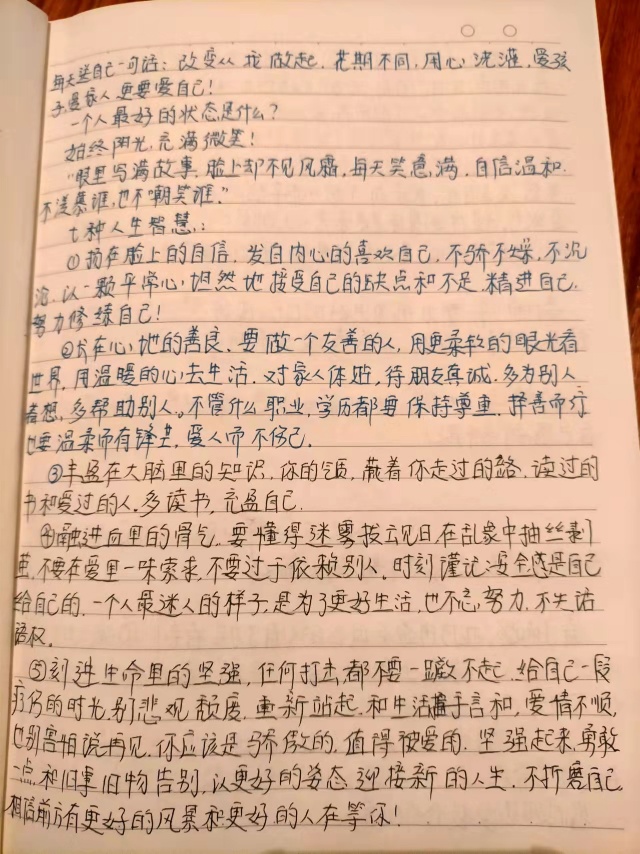 每天送自己一句话：改变从我做起，花期不同，用心浇灌，爱孩
子爱家人更要爱自己！
一个人最好的状态是什么？
始终阳光，充满微笑！
"眼里写满故事，脸上却不见风霜，每天笑意满，自信温和.
不羡慕谁，也不嘲笑谁."
七种人生智慧：
①扬在脸上的自信，发自内心的喜欢自己，不骄不燥，不沉
沦，以一颗平常心，坦然地接受自己的缺点和不足，精进自己，
努力修练自己！
②长在心地的善良，要做一个友善的人，用更柔软的眼光看
世界，用温暖的心去生活，对家人体贴，待朋友真诚，多为别人
着想，多帮助别人。不管什么职业，学历都要保持尊重，择善而行
也要温柔而有锋芒，爱人而不伤己.
③丰盈在大脑里的知识，你的气质，藏着你走过的路，读过的
书和爱过的人，多读书，充盈自己.
④融进血里的骨气，要懂得迷雾拔云见日在乱象中抽丝剥
茧，不要在爱里一味索求，不要过于依赖别人，时刻谨记:安全感是自己
给自己的，一个人最迷人的样子，是为了更好生活，也不忘努力，不失话
语权.
⑤刻进生命里的坚强，任何打击都不要一蹶不起，给自己一段
疗伤的时光，别悲观颓废，重新站起，和生活握手言和，爱情不顺，
也别害怕说再见，你应该是骄傲的，值得被爱的，坚强起来，勇敢
一点和旧事旧物告别，以更好的姿态迎接新的人生，不折磨自己，
相信前方有更好的风景和更好的人在等你！